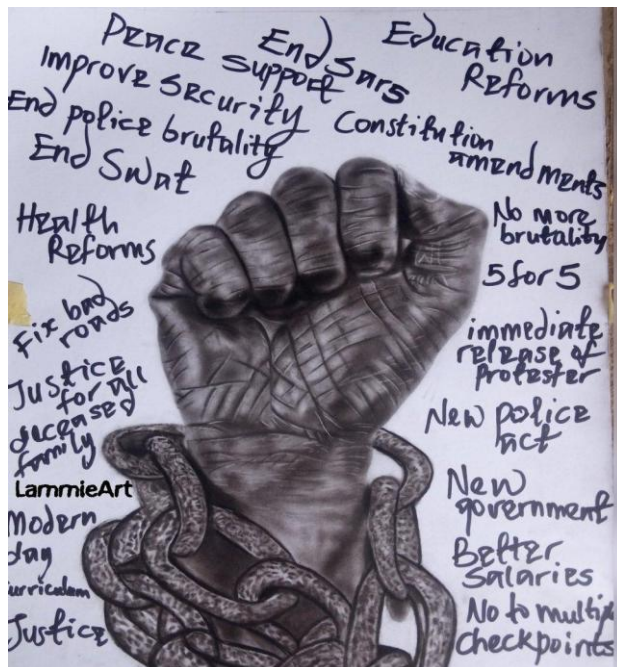 Peace support
End Sars
Education
Reforms
Improve security
End police brutality
Constitution
amendments
End Swat
Health
Reforms
No more
brutality
5 for 5
Fix bad
roads
immediate
release of
Protester
Justice
for all
deceased
family
New police
act
LammieArt
New
government
Modern
day
curriculum
Better
Salaries
Justice
No to multiple
checkpoints